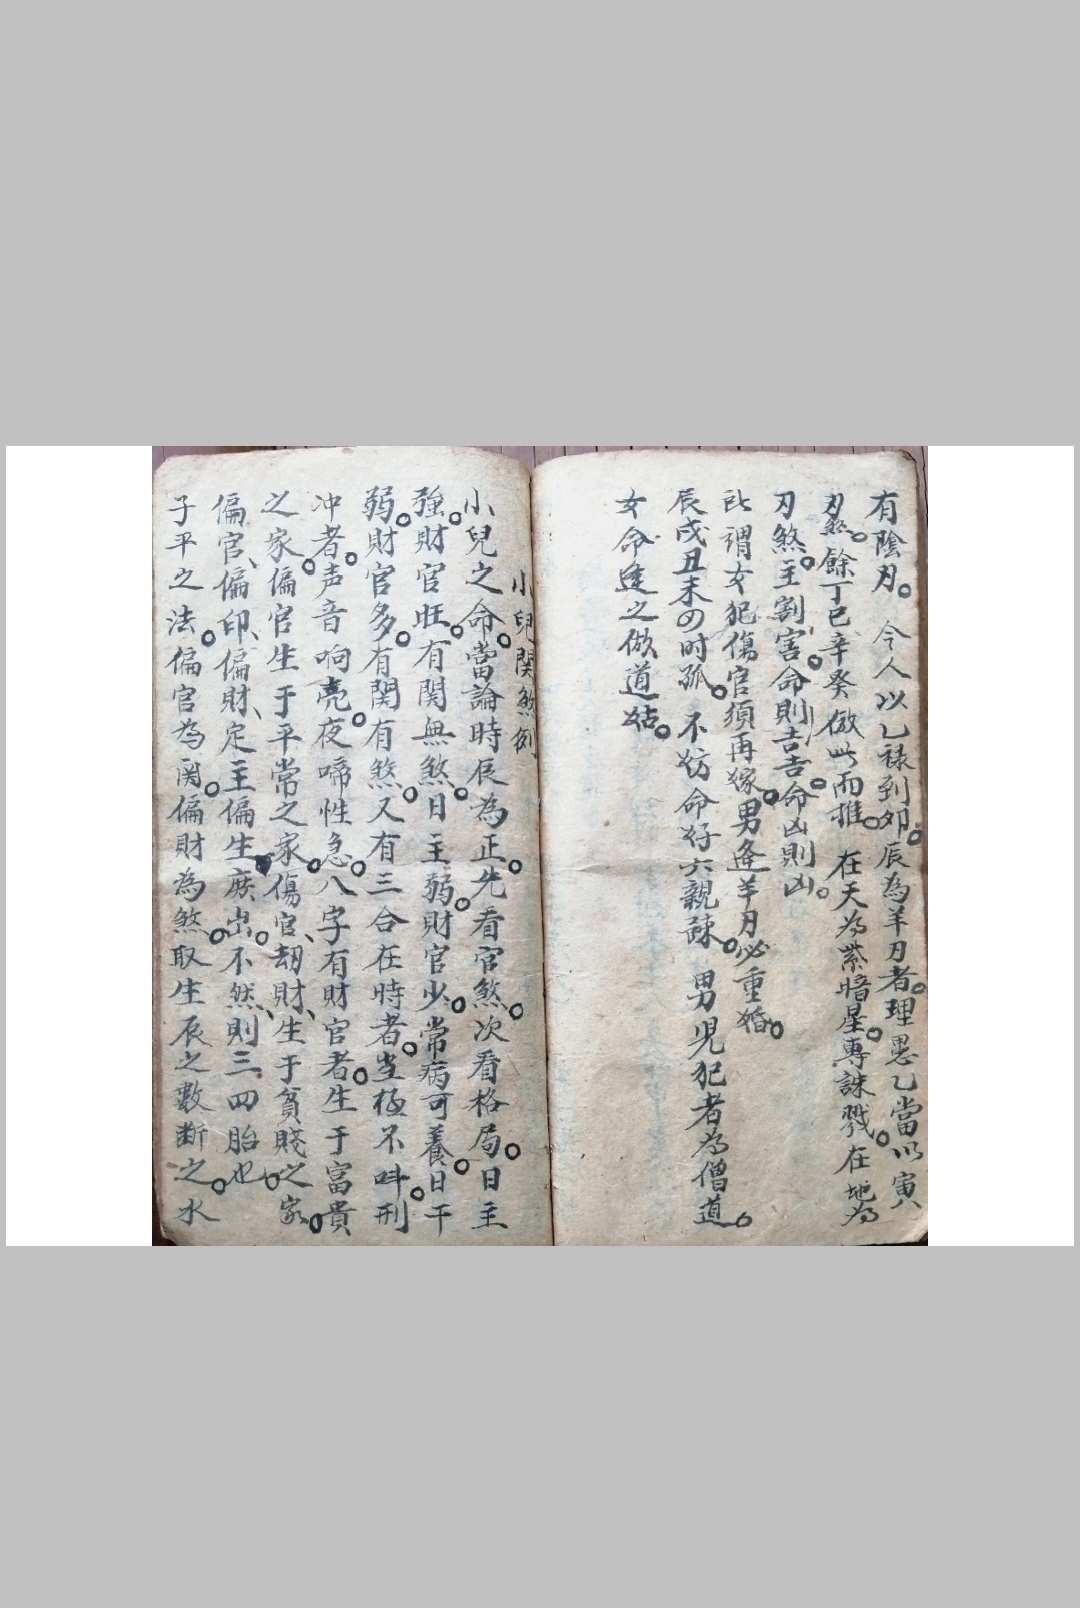 有陰刃。令人以乙祿到卯。辰為羊刃者。理愚乙當以寅
刃煞。餘丁巳辛癸倣此而推。在天為紫暗星。專誅戮。在地為
刃煞。主割害。命則吉吉。命凶則凶。
訛謂女犯傷官須再嫁。男逢羊刃必重婚。
辰戌丑未の时孤。不妨命好六親疎。男児犯者為僧道。
女命逢之做道姑。
小兒関煞例
小兒之命。當論時辰為正。先看官煞。次看格局。日主
強。財官旺。有関無煞。日主弱。財官少。常病可養。日干
弱。財官多。有関有煞。又有三合在時者。並極不叶刑
冲者。声音响亮。夜啼性急。八字有財官者。生于富貴
之家。偏官生于平常之家。傷官、劫財、生于貧賤之家。
偏官、偏印、偏財、定主偏生庶出。不然、則三四胎也。
子平之法。偏官為関。偏財為煞。取生辰之數斷之。水